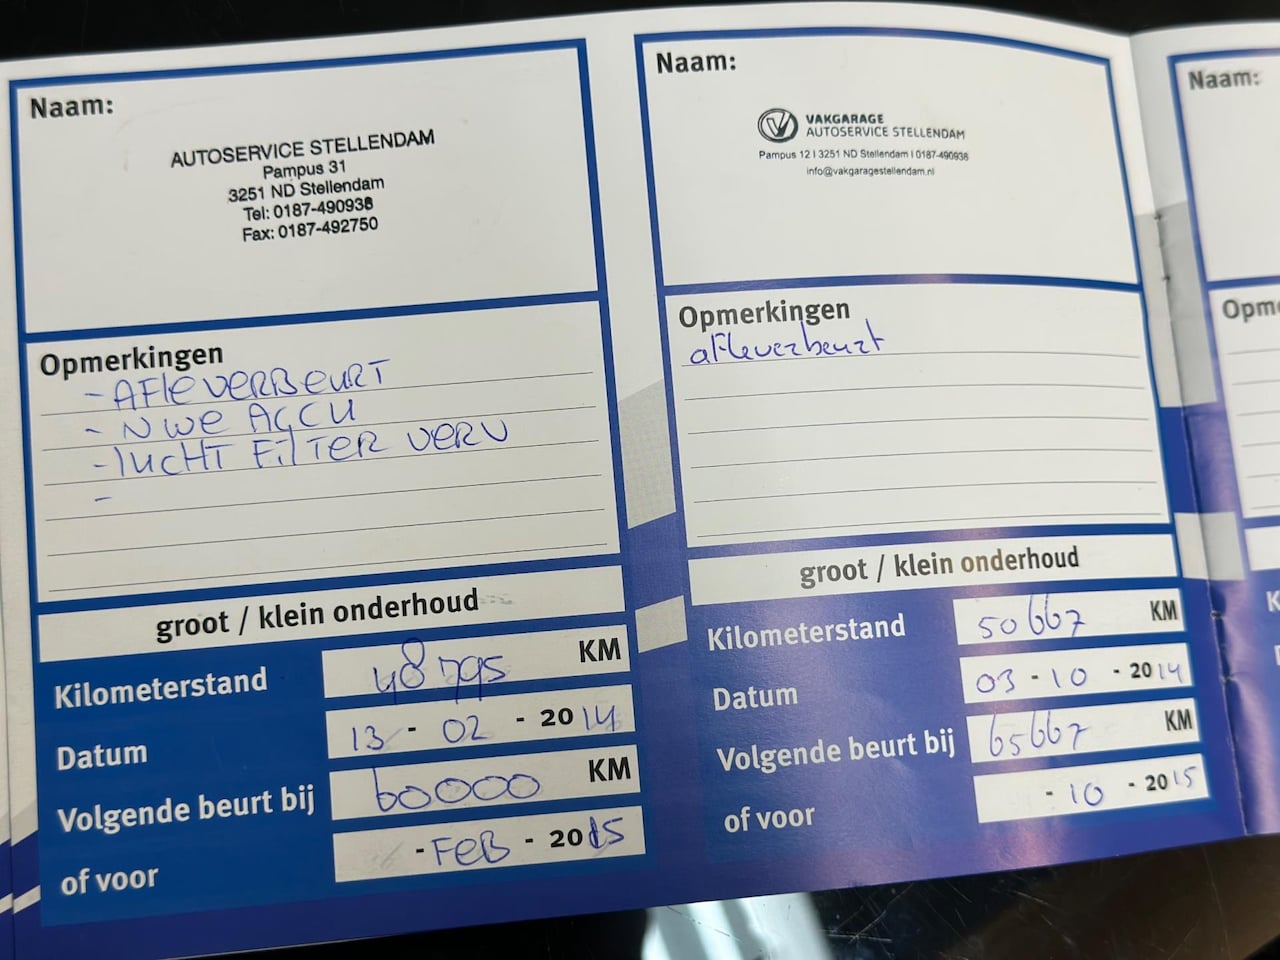 Naam:
AUTOSERVICE STELLENDAM
Pampus 31
3251 ND Stellendam
Tel: 0187-490938
Fax: 0187-492750
Opmerkingen
- AFleVERBEURT
- NWe ACCU
- lucHT FilTER VERV
-
groot / klein onderhoud
Kilometerstand 48795 KM
Datum 13 - 02 - 2014
Volgende beurt bij 60000 KM
of voor - FEB - 2015
Naam:
VAKGARAGE
AUTOSERVICE STELLENDAM
Pampus 12 | 3251 ND Stellendam | 0187-490938
info@vakgaragestellendam.nl
Opmerkingen
afleverbeurt
groot / klein onderhoud
Kilometerstand 50667 KM
Datum 03 - 10 - 2014
Volgende beurt bij 65667 KM
of voor - 10 - 2015
Naam:
Opm